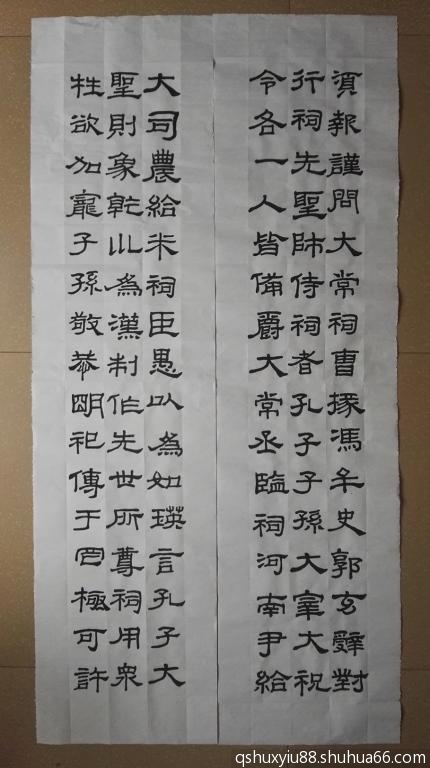 須報謹問大常祠曹掾馮牟史郭玄辤對
行祠先聖師侍祠者孔子子孫大宰大祝
令各一人皆備爵大常丞臨祠河南尹給
大司農給米祠臣愚以為如瑛言孔子大
聖則象乾川為漢制作先世所尊祠用衆
牲欲加寵子孫敬恭明祀傳于罔極可許
qshuxyiu88.shuhua66.com